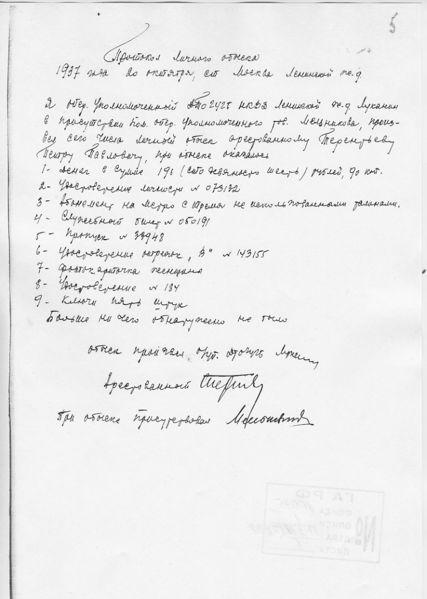 5
Протокол личного обыска
1937 года 20 октября, ст Москва Ленинской ж.д
Я опер. Уполномоченный НКВД Ленинской ж.д Луканин
в присутствии пом. опер. уполномоченного тов. Мельникова, произ-
вел сего числа личной обыск арестованному Терентьеву
Петру Павловичу, при обыске оказалось
1- денег в сумме 196 (сто девяносто шесть) рублей, 90 коп.
2- Удостоверение личности № 073132
3- Абонемент на метро с тремя не использованными талонами.
4- Служебный билет № 050191
5- Пропуск № 38948
6- Удостоверение отрезок „В" № 143155
7- фотокарточка женщина
8- Удостоверение № 134
9- Ключи пять штук
Больше ни чего обнаружено не было
обыск произвел
Арестованный
При обыске присутствовал
ГАРФ